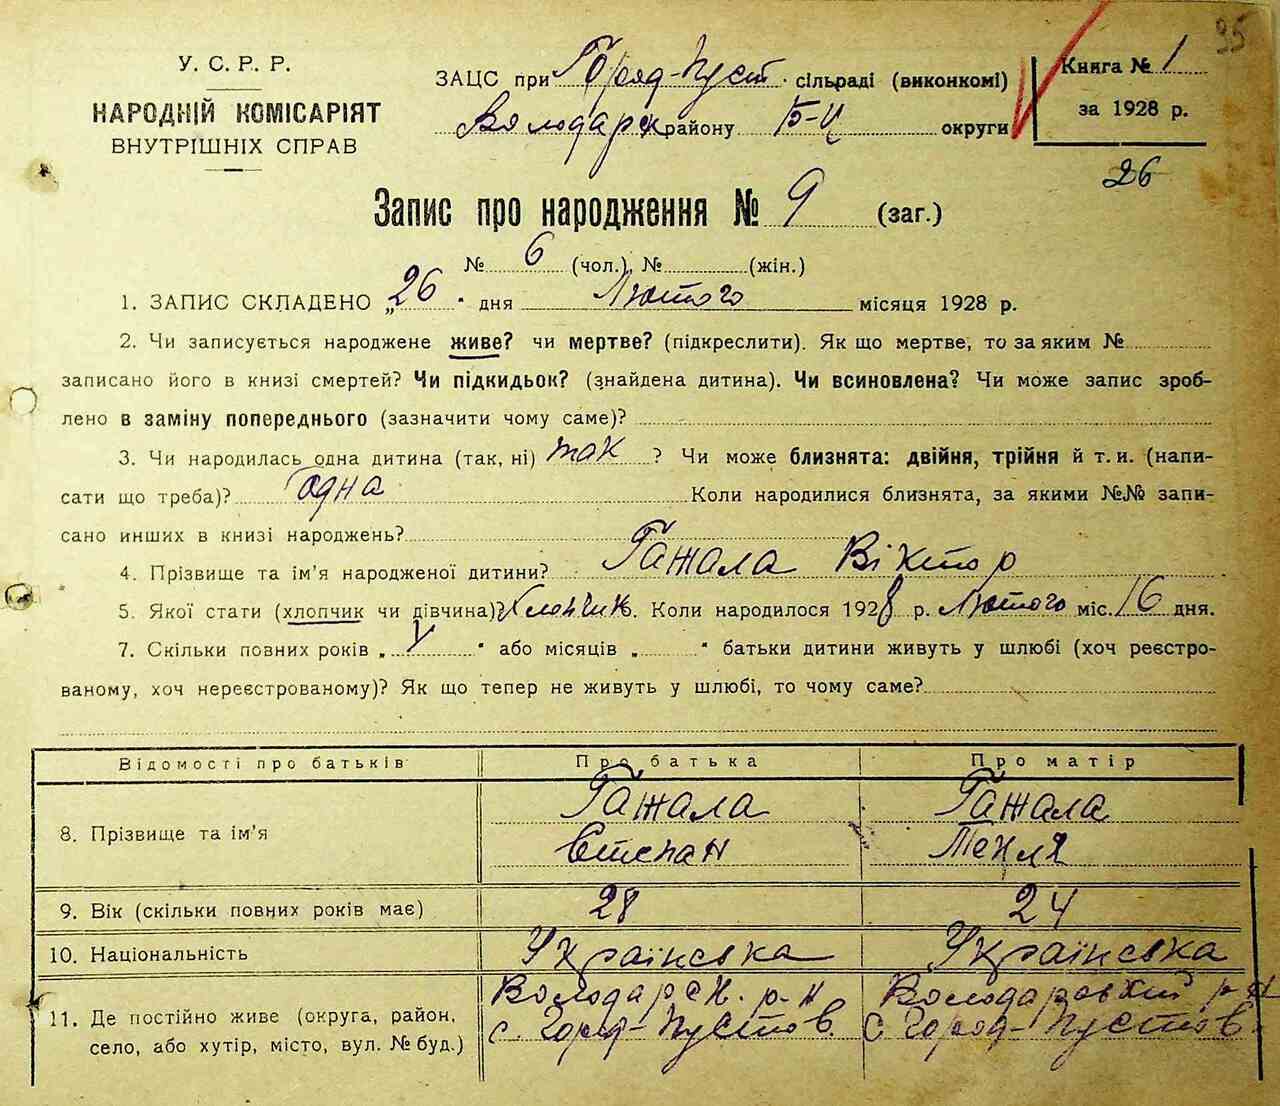 95
У. С. Р. Р.
НАРОДНІЙ КОМІСАРІЯТ
ВНУТРІШНІХ СПРАВ
ЗАЦС при Город-Пуст. сільраді (виконкомі)
Володарськ району Б-Ц округи
Книга № 1
за 1928 р.
26
Запис про народження № 9 (заг.)
№ 6 (чол.), № (жін.)
1. ЗАПИС СКЛАДЕНО „26" дня Лютого місяця 1928 р.
2. Чи записується народжене живе? чи мертве? (підкреслити). Як що мертве, то за яким №
записано його в книзі смертей? Чи підкидьок? (знайдена дитина). Чи всиновлена? Чи може запис зроб-
лено в заміну попереднього (зазначити чому саме)?
3. Чи народилась одна дитина (так, ні) так ? Чи може близнята: двійня, трійня й т. и. (напи-
сати що треба)? одна Коли народилися близнята, за якими №№ запи-
сано инших в книзі народжень?
4. Прізвище та ім'я народженої дитини? Гажала Віктор
5. Якої стати (хлопчик чи дівчина)? Хлопчик. Коли народилося 1928 р. Лютого міс. 16 дня.
7. Скільки повних років „ У " або місяців „ " батьки дитини живуть у шлюбі (хоч реєстро-
ваному, хоч нереєстрованому)? Як що тепер не живуть у шлюбі, то чому саме?
Відомості про батьків Про батька Про матір
8. Прізвище та ім'я Гажала Степан Гажала Текля
9. Вік (скільки повних років має) 28 24
10. Національність Українська Українська
11. Де постійно живе (округа, район, Володарськ. р-н Володарський р-н
село, або хутір, місто, вул. № буд.) с. Город-Пустов. с. Город-Пустов.